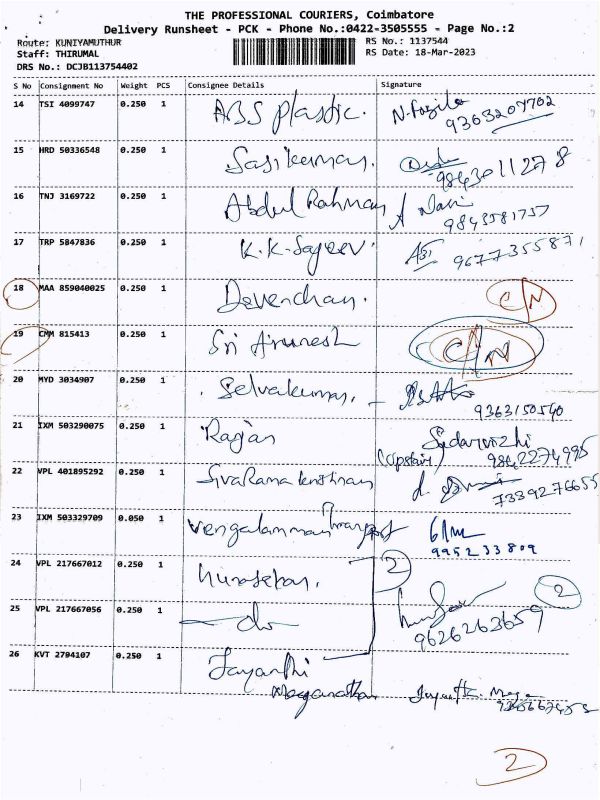 THE PROFESSIONAL COURIERS, Coimbatore
Delivery Runsheet - PCK - Phone No.:0422-3505555 - Page No.:2
Route: KUNIYAMUTHUR RS No.: 1137544
Staff: THIRUMAL RS Date: 18-Mar-2023
DRS No.: DCJB113754402
S No Consignment No Weight PCS Consignee Details Signature
14 TSI 4099747 0.250 1 ABS plastic. N. Fazila
9363207702
15 HRD 50336548 0.250 1 Sasikumar.
9843011278
16 TNJ 3169722 0.250 1 Abdul Rahman
9843581757
17 TRP 5847836 0.250 1 K.K. Sajeev.
9677355871
18 MAA 859040025 0.250 1 Devenchan. C/N
19 CMM 815413 0.250 1 Sri Arunesh C/N
20 MYD 3034907 0.250 1 Selvakumar.
9363150540
21 IXM 503290075 0.250 1 Rajan
(upstair) 9842274995
22 VPL 401895292 0.250 1 SivaRama krishnan
7339276655
23 IXM 503329709 0.050 1 Vengalamman Transport
995233809
24 VPL 217667012 0.250 1 2
25 VPL 217667056 0.250 1 do 2
9626263659
26 KVT 2794107 0.250 1 Jayanthi
Meganathan Jayanthi. Mega
2